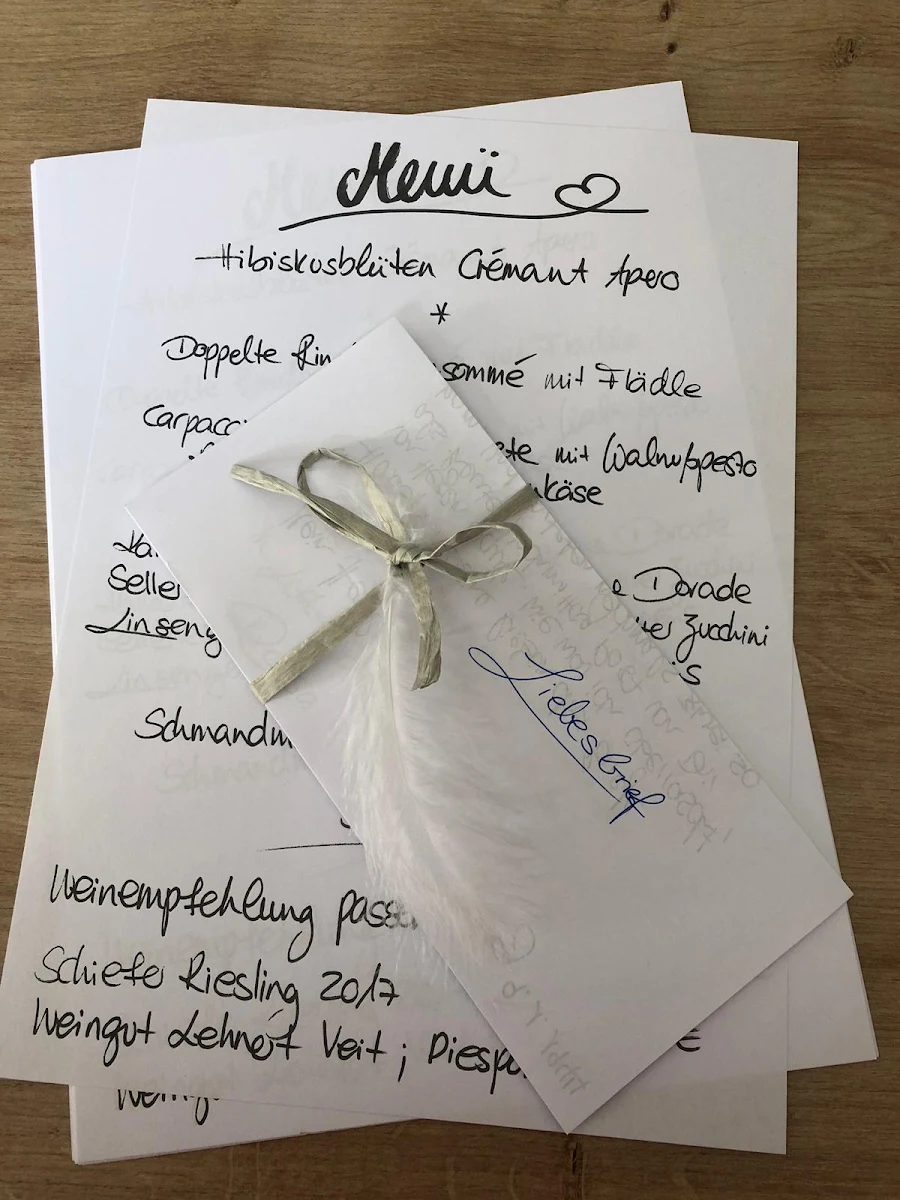 Menü
Hibiskusblüten Crémant Apero
*
Doppelte Rin sommé mit Flädle
Carpacc ete mit Walnußpesto
nkäse
e Dorade
Selle tes Zucchini
Linseng is
Schmandm
Weinempfehlung passe
Schiefer Riesling 2017
Weingut Lehnert Veit ; Diespo €
Liebesbrief